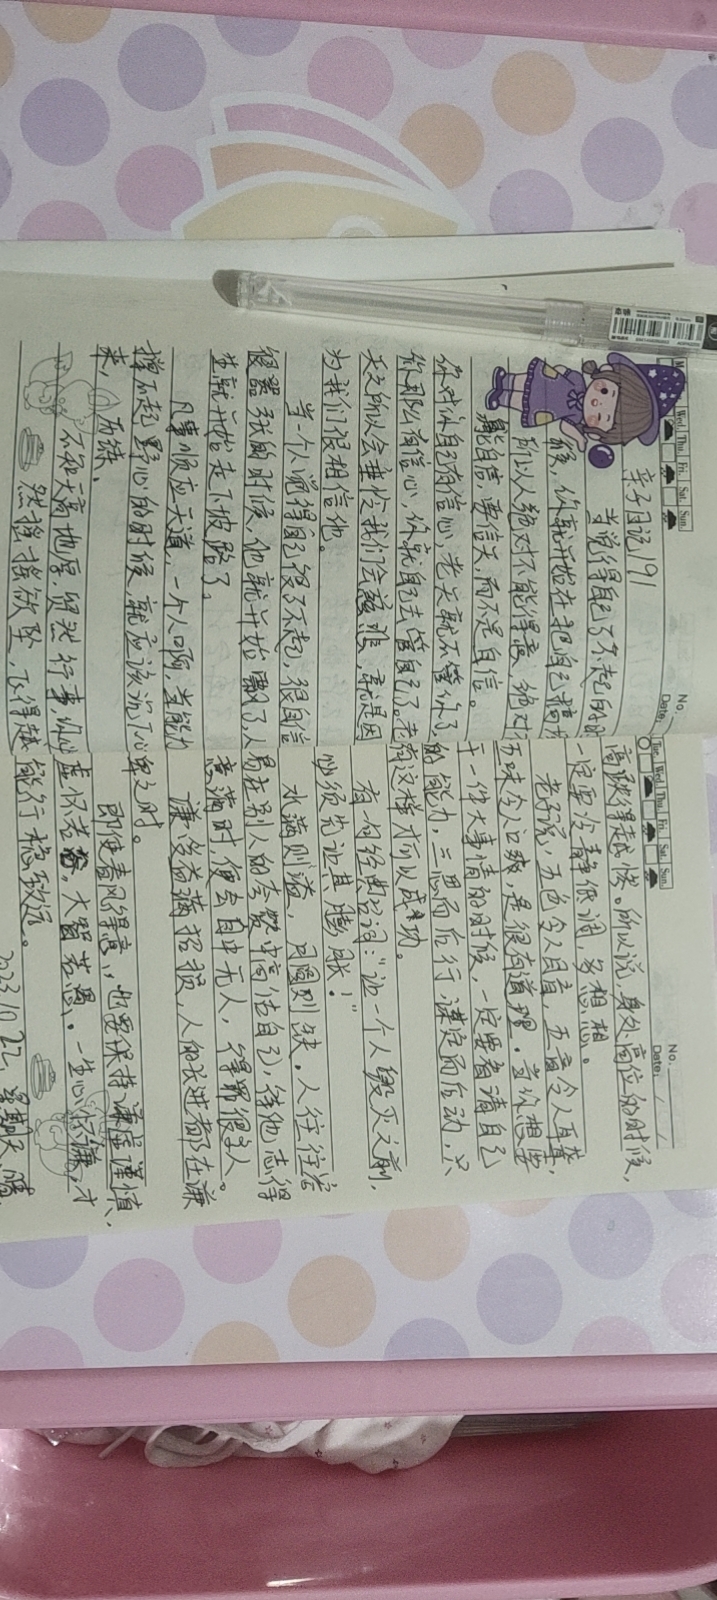 No.
Date.
Wed. Thu. Fri. Sat. Sun.
亲子日记191
当觉得自己了不起的时
候，你就开始在把自己搞
所以人绝对不能得意，绝对
能自信，要信天，而不是自信。
你对你自己有信心，老天就不管你了，
你那么有信心，你就自己去管自己了。老
天之所以会垂怜我们会慈悲，就是因
为我们很相信他。
当一个人觉得自己很了不起，很自信
很嚣张的时候，他就开始飘了，人
生就开始走下坡路了。
凡事顺应天道，一个人啊，当能力
撑不起野心的时候，就应该沉下心
来，历练。
不知天高地厚，贸然行事，你必
然摇摇欲坠，飞得越
No.
Date.
Tue. Wed. Thu. Fri. Sat. Sun.
高跌得越快。所以说，身处高位的时候，
一定要冷静低调，多想想。
老子说，五色令人目盲，五音令人耳聋，
五味令人口爽，是很有道理。当你想要
干一件大事情的时候，一定要看清自己
的能力，三思而后行，谋定而后动，只
有这样才可以成功。
有句经典台词：“让一个人毁灭之前，
必须先让其膨胀！”
水满则溢，月圆则缺。人往往容
易在别人的夸赞中高估自己，待他志得
意满时，便会目中无人，得罪很多人。
谦受益满招损，人的长进都在谦
卑之时。
即使春风得意，也要保持谦虚谨慎，
虚怀若谷。大智若愚。一生心怀谦，才
能行稳致远。
2023.10.22，星期天，晴